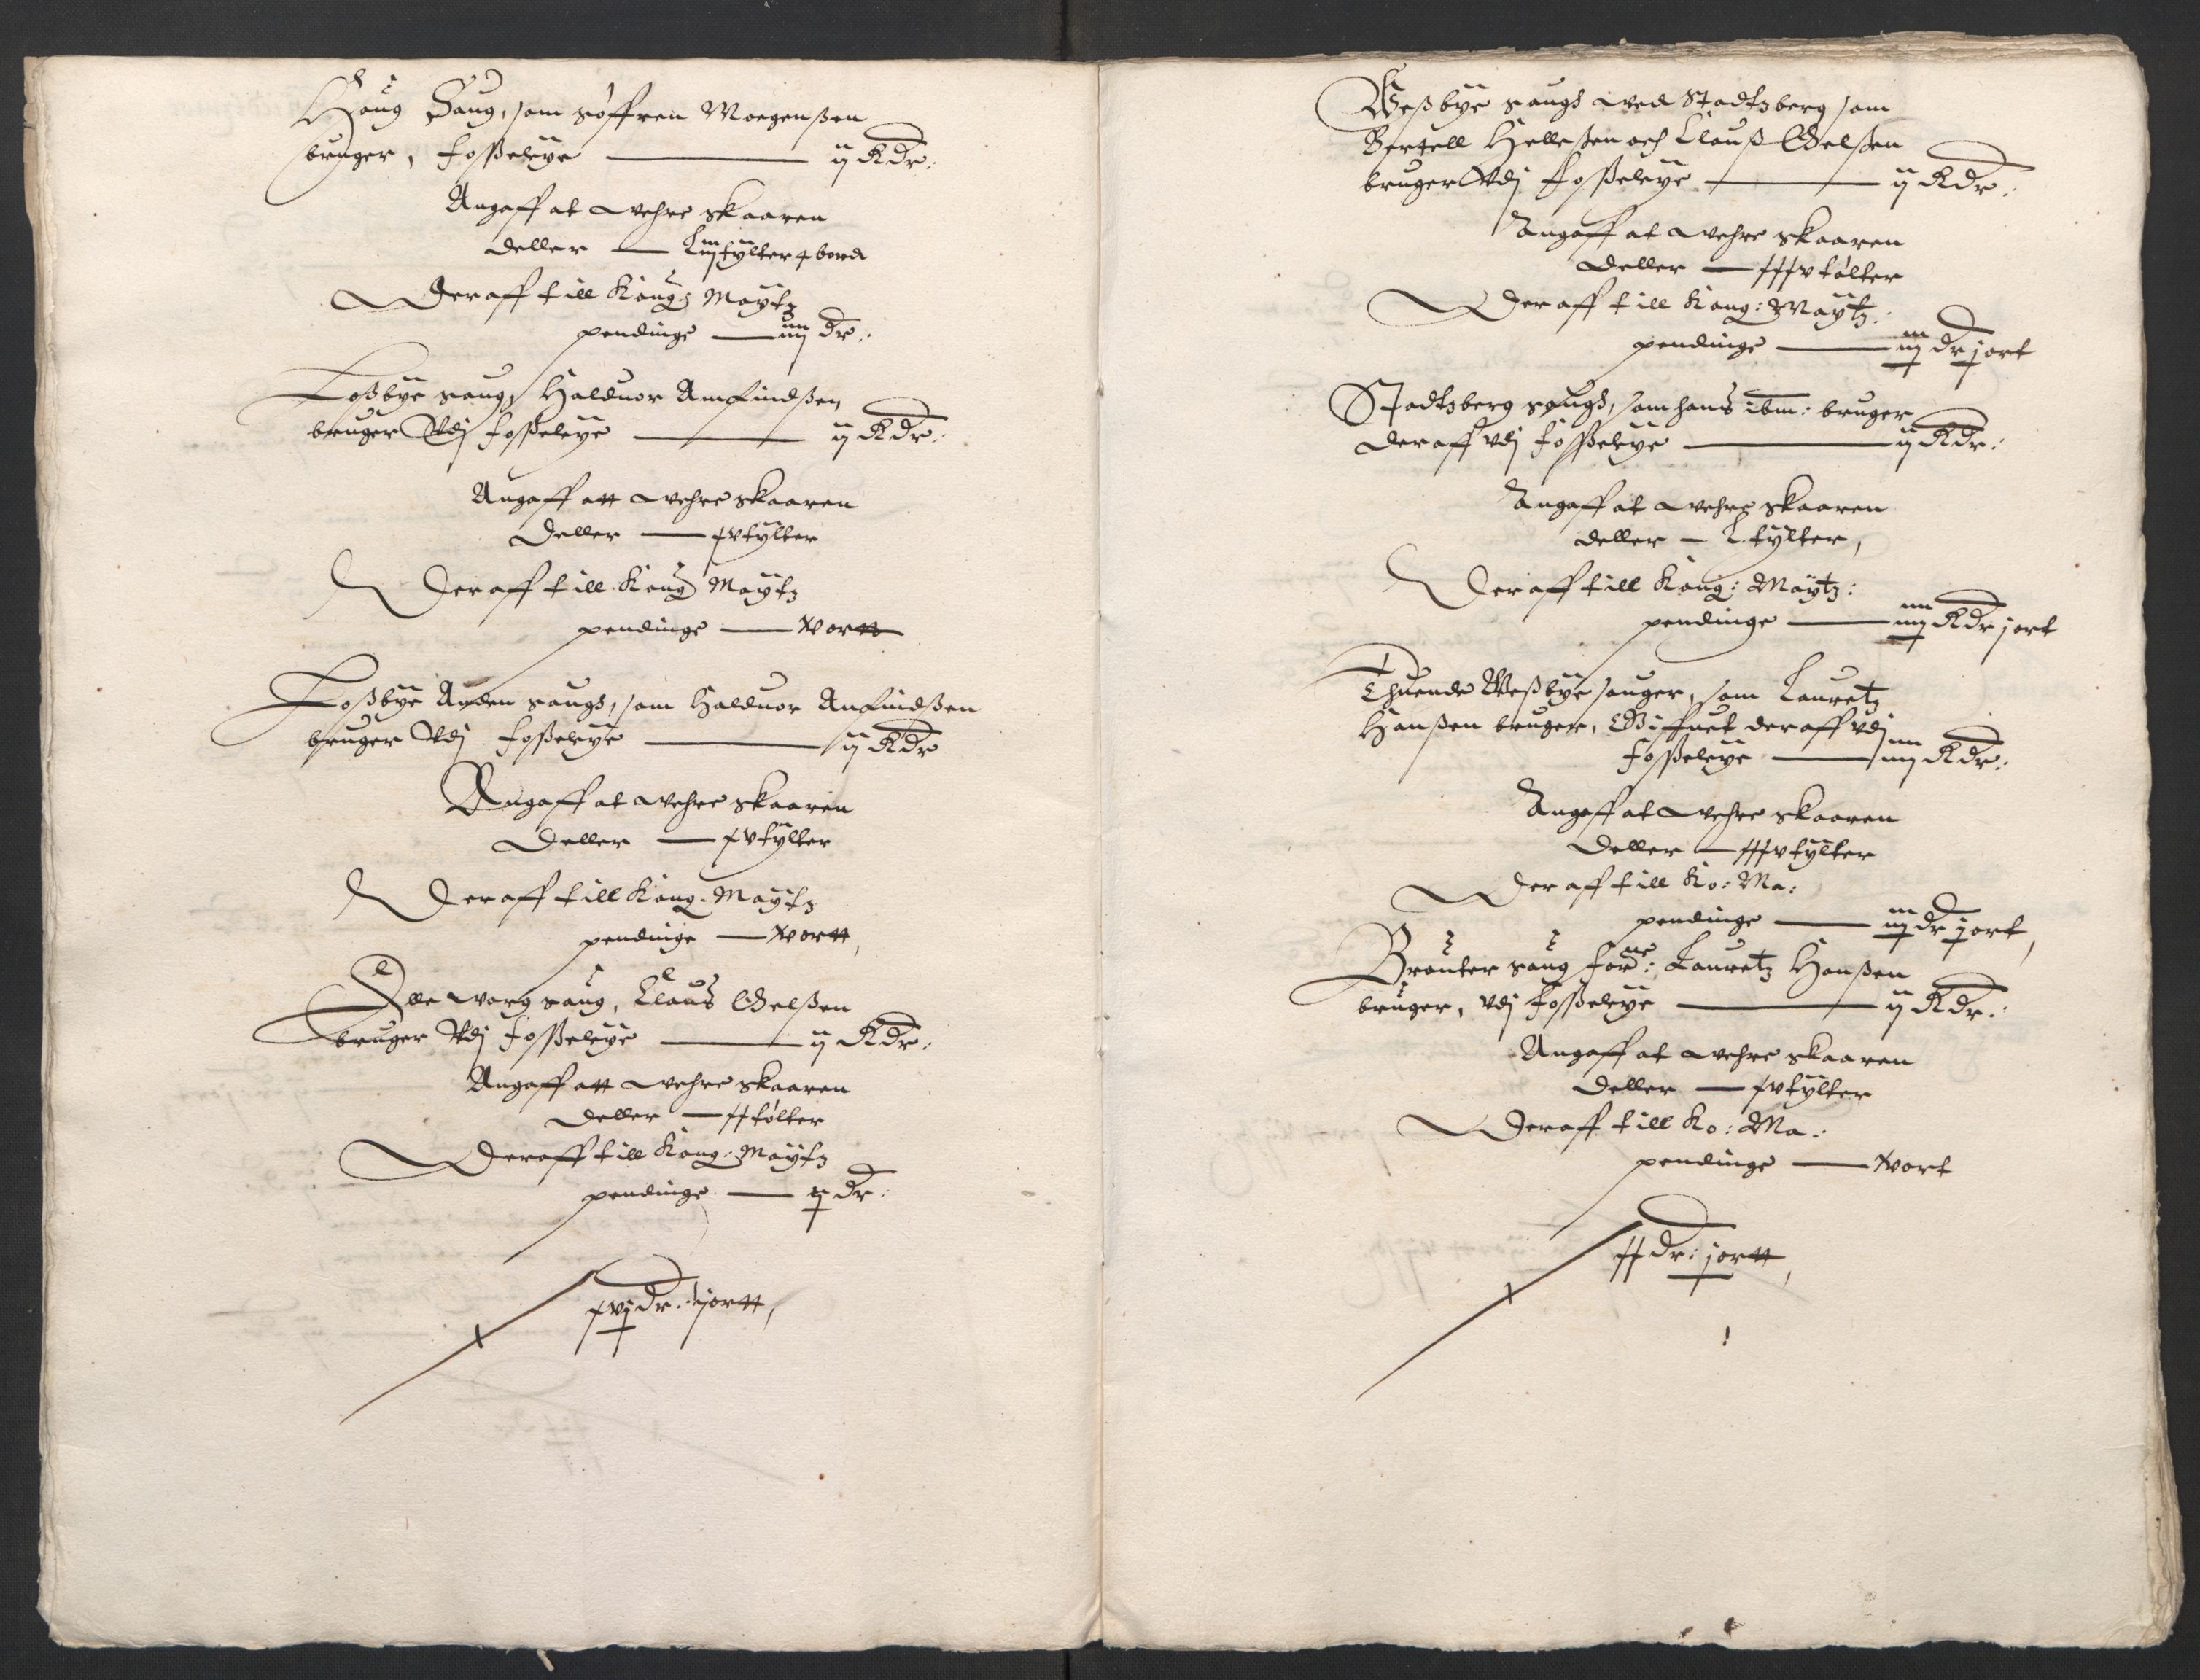 Houg Saug, som Søffren Moegenßen
bruger, foßeleye — ij Rdr:
Angaff at wehre skaaren
deller — Liiij tylter 4 bord
Deraff till Kong: Maytz
pendinge — iiij dr:
Foßbye saug, Halduor Amfindßen
bruger Vdj foßeleye — ij Rdr:
Angaff att wehre skaaren
Deller — xv tylter
Deraff till Kong Maytz
pendinge — v ortt
Foßbye Anden saugh, som Halduor Anfindßen
bruger Vdj foßeleye — ij Rdr
Angaff at wehre skaaren
Deller — xv tylter
Deraff till Kong. Maytz
pendinge — v ortt,
Ellewarg saug, Claus Oelßen
bruger Vdj foßeleye — ij Rdr:
Angaff att wehre skaaren
deller — xx tølter
Deraff till Kong: Maytz
pendinge — ij dr:
xvj dr: j ortt,
Weßbye saugh ved Stadtzberg som
Bertell Helleßen och Clauß Oelßen
bruger Vdj foßeleye — ij Rdr:
Angaff at wehre skaaren
deller — xxxv tølter
Deraff till Kong: Maytz:
pendinge — iij dr j ort
Stadtzberg saugh, som hans ibm: bruger
deraff vdj foßeleye — ij Rdr:
Angaff at wehre skaaren
deller — L tylter,
Deraff till Kong: Maytz:
pendinge — iiij Rdr j ort
Thuende Weßbye sauger, som Lauretz
Hanßen bruger, Giffuet deraff vdj
foßeleye — iiij Rdr:
Angaff at wehre skaaren
Deller — xxxv tylter
Deraff till Ko: Ma:
pendinge — iij dr j ort,
Brauter saug forne: Lauretz Hanßen
bruger, vdj foßeleye — ij Rdr:
Angaff at wehre skaaren
Deller — xv tylter
Deraff till Ko: Ma:
pendinge — v ort
xx dr: j ortt,